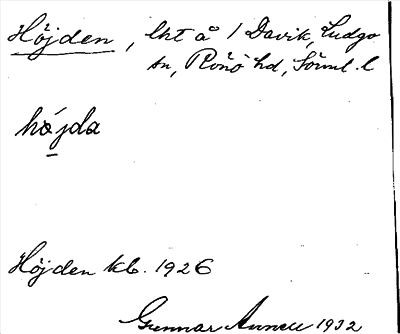 Höjden, lht å 1 Davik, Ludgo
sn, Rönö hd, Sörml. l
höjda
Höjden kb. 1926
Gunnar 1932